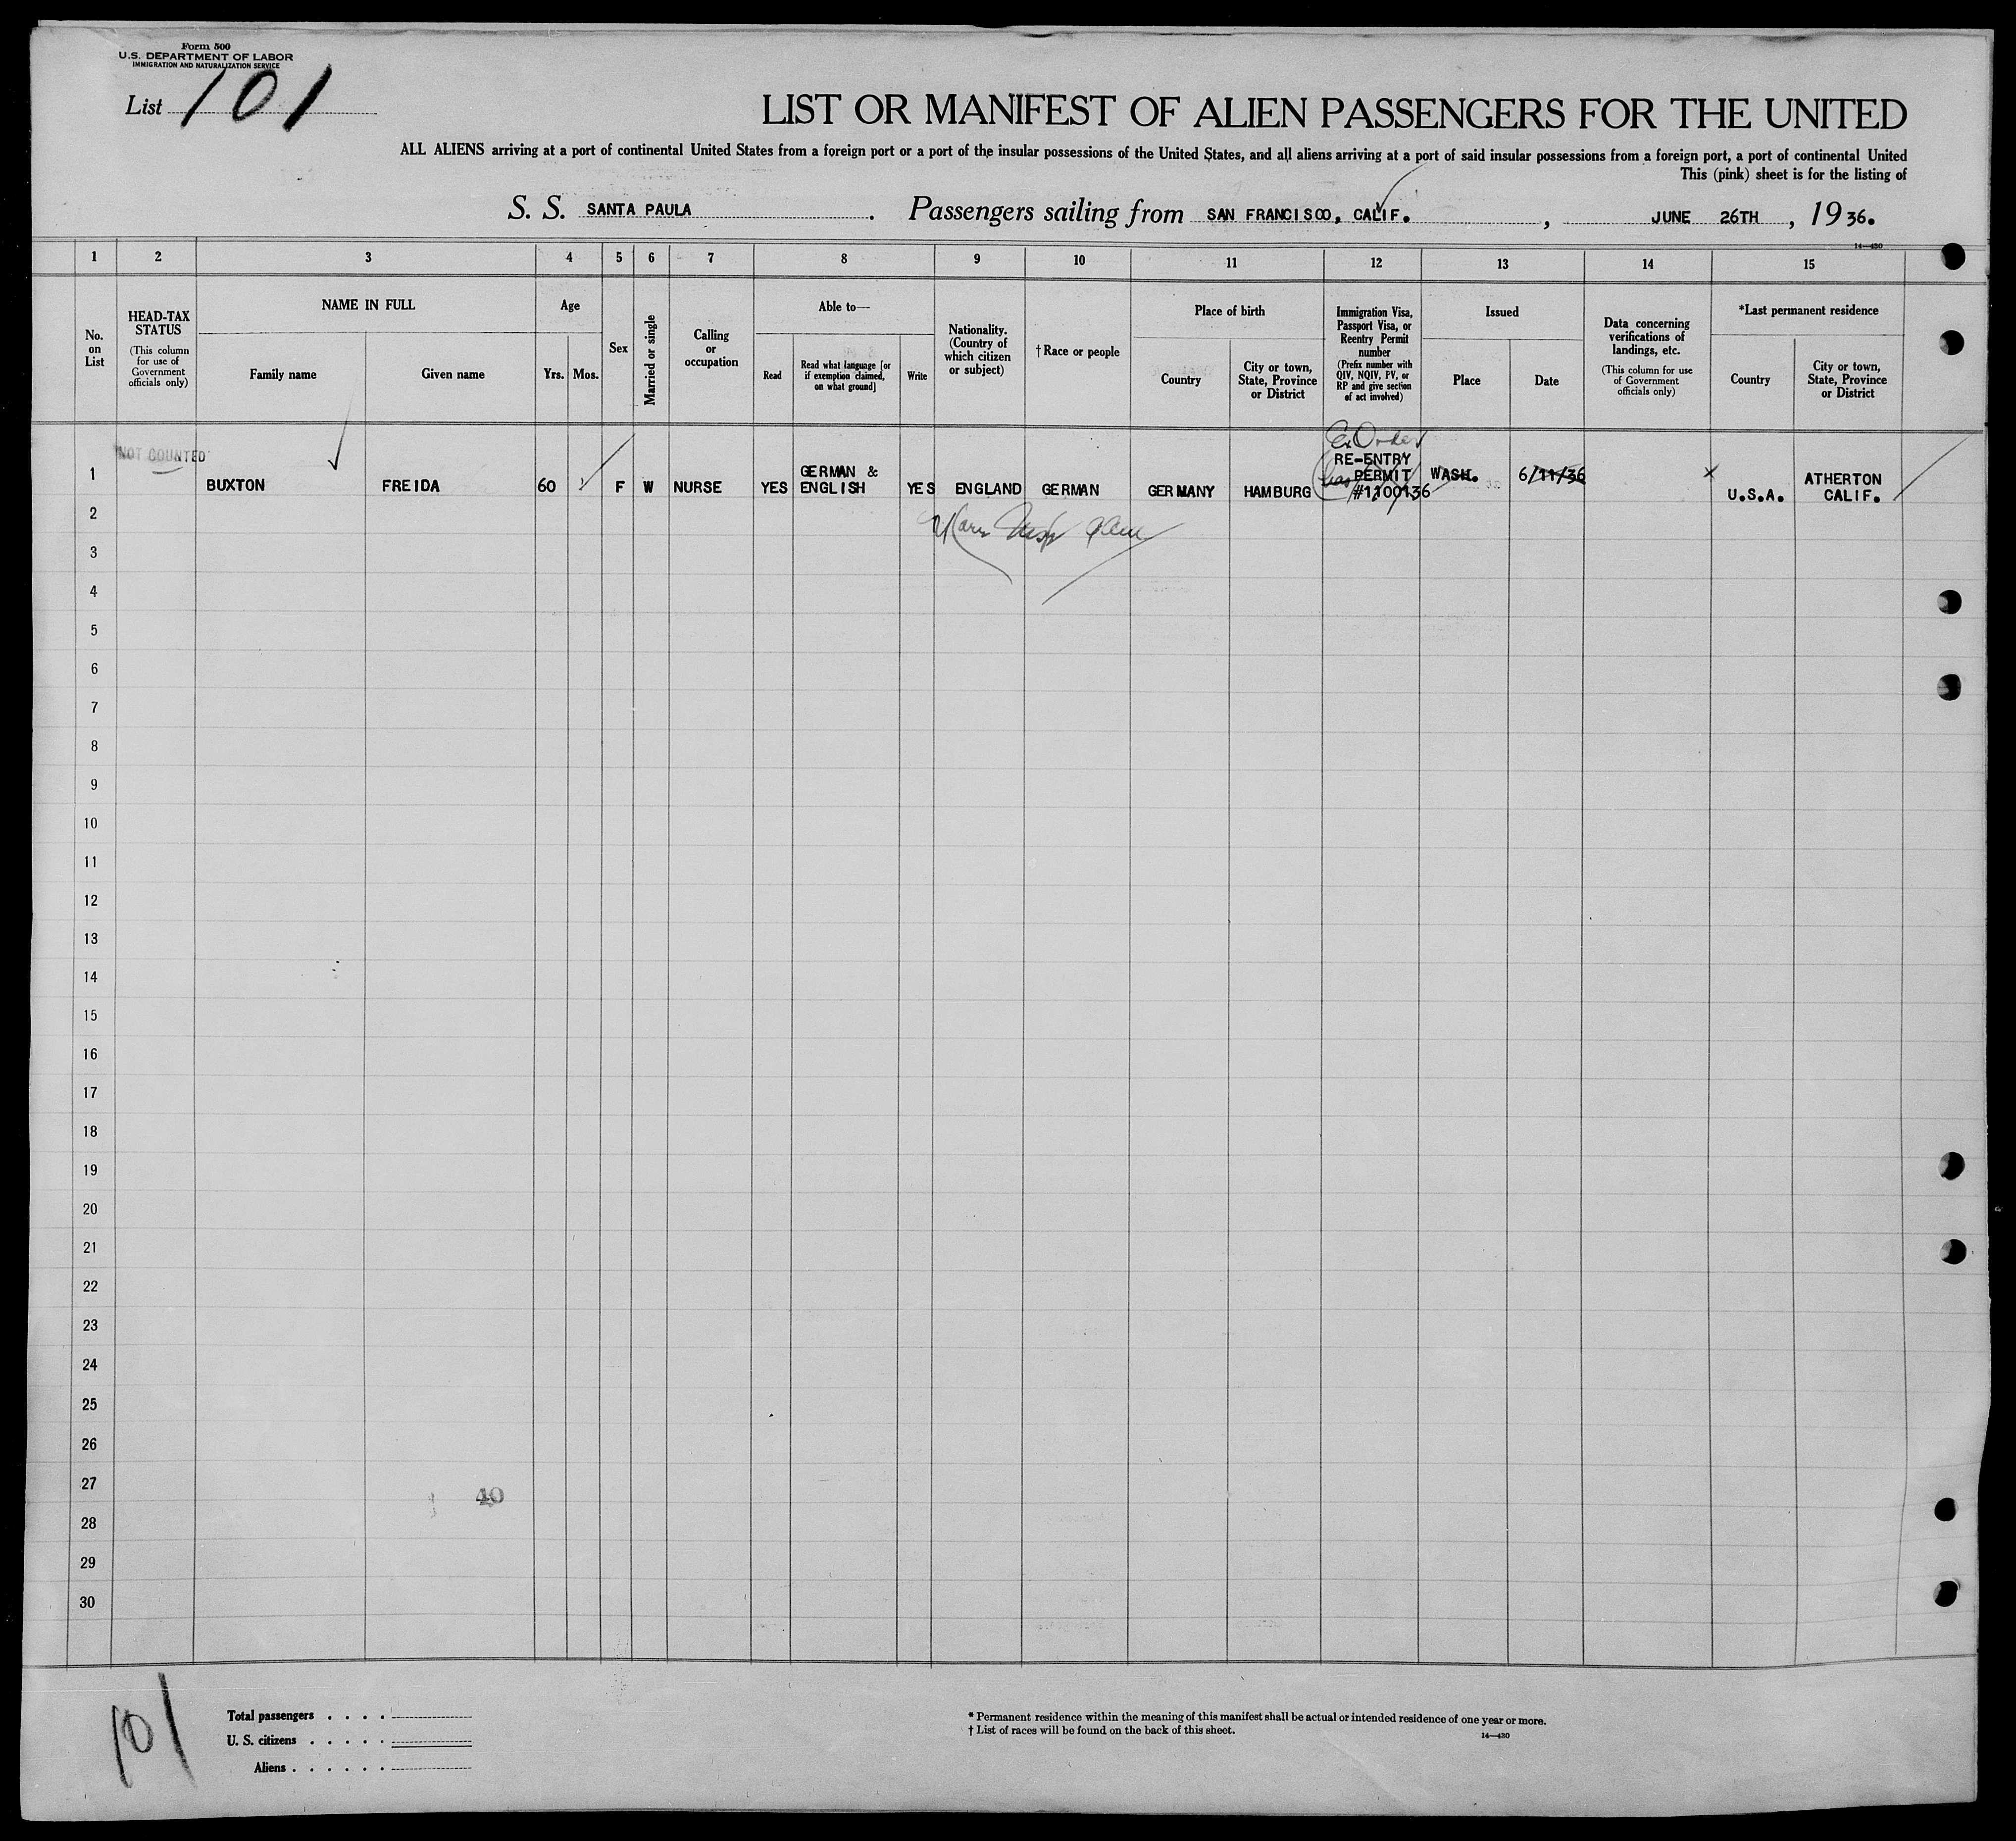 Form 500
U.S. DEPARTMENT OF LABOR
IMMIGRATION AND NATURALIZATION SERVICE
List 101
LIST OR MANIFEST OF ALIEN PASSENGERS FOR THE UNITED
ALL ALIENS arriving at a port of continental United States from a foreign port or a port of the insular possessions of the United States, and all aliens arriving at a port of said insular possessions from a foreign port, a port of continental United
This (pink) sheet is for the listing of
S. S. SANTA PAULA. Passengers sailing from SAN FRANCISCO, CALIF., JUNE 26TH, 1936.
14—430
1 2 3 4 5 6 7 8 9 10 11 12 13 14 15
No. on List
HEAD-TAX STATUS
(This column for use of Government officials only)
NAME IN FULL
Family name
Given name
Age
Yrs.
Mos.
Sex
Married or single
Calling or occupation
Able to—
Read
Read what language [or if exemption claimed, on what ground]
Write
Nationality. (Country of which citizen or subject)
†Race or people
Place of birth
Country
City or town, State, Province or District
Immigration Visa, Passport Visa, or Reentry Permit number
(Prefix number with QIV, NQIV, PV, or RP and give section of act involved)
Issued
Place
Date
Data concerning verifications of landings, etc.
(This column for use of Government officials only)
*Last permanent residence
Country
City or town, State, Province or District
NOT COUNTED
Ex Order
1 BUXTON FREIDA 60 F W NURSE YES GERMAN & ENGLISH YES ENGLAND GERMAN GERMANY HAMBURG RE-ENTRY PERMIT #1100136 WASH. 6/11/36 x U.S.A. ATHERTON CALIF.
2
3
4
5
6
7
8
9
10
11
12
13
14
15
16
17
18
19
20
21
22
23
24
25
26
27
40
28
29
30
101
Total passengers
U. S. citizens
Aliens
* Permanent residence within the meaning of this manifest shall be actual or intended residence of one year or more.
† List of races will be found on the back of this sheet.
14—430